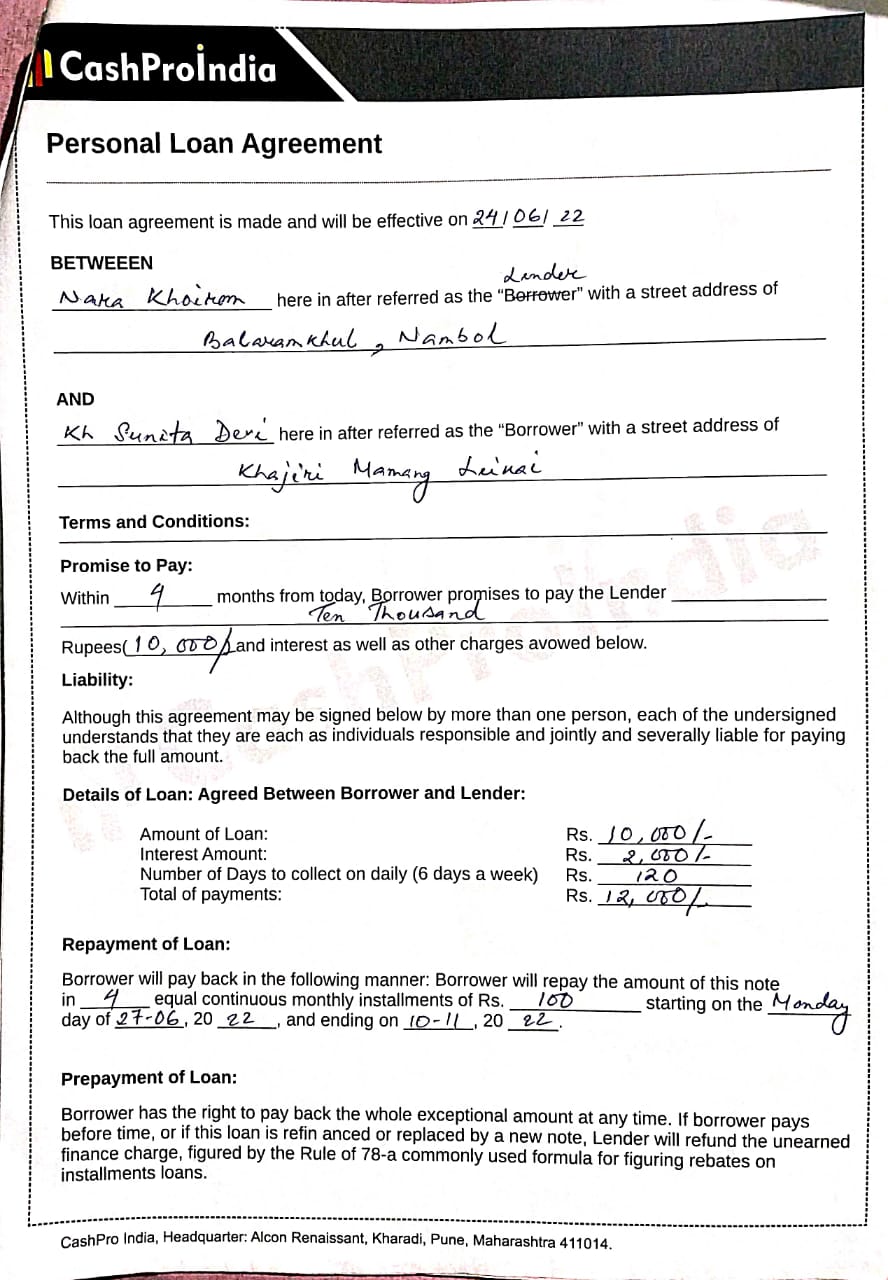 CashProIndia
Personal Loan Agreement
This loan agreement is made and will be effective on 24/06/22
BETWEEEN
Lender
Nara Khoirom here in after referred as the “Borrower” with a street address of
Balaramkhul, Nambol
AND
Kh Sunita Devi here in after referred as the “Borrower” with a street address of
Khajiri Mamang Leikai
Terms and Conditions:
Promise to Pay:
Within 4 months from today, Borrower promises to pay the Lender
Ten Thousand
Rupees(10,000/- and interest as well as other charges avowed below.
Liability:
Although this agreement may be signed below by more than one person, each of the undersigned
understands that they are each as individuals responsible and jointly and severally liable for paying
back the full amount.
Details of Loan: Agreed Between Borrower and Lender:
Amount of Loan: Rs. 10,000/-
Interest Amount: Rs. 2,000/-
Number of Days to collect on daily (6 days a week) Rs. 120
Total of payments: Rs. 12,000/-
Repayment of Loan:
Borrower will pay back in the following manner: Borrower will repay the amount of this note
in 4 equal continuous monthly installments of Rs. 100 starting on the Monday
day of 27-06, 20 22, and ending on 10-11, 20 22.
Prepayment of Loan:
Borrower has the right to pay back the whole exceptional amount at any time. If borrower pays
before time, or if this loan is refin anced or replaced by a new note, Lender will refund the unearned
finance charge, figured by the Rule of 78-a commonly used formula for figuring rebates on
installments loans.
CashPro India, Headquarter: Alcon Renaissant, Kharadi, Pune, Maharashtra 411014.